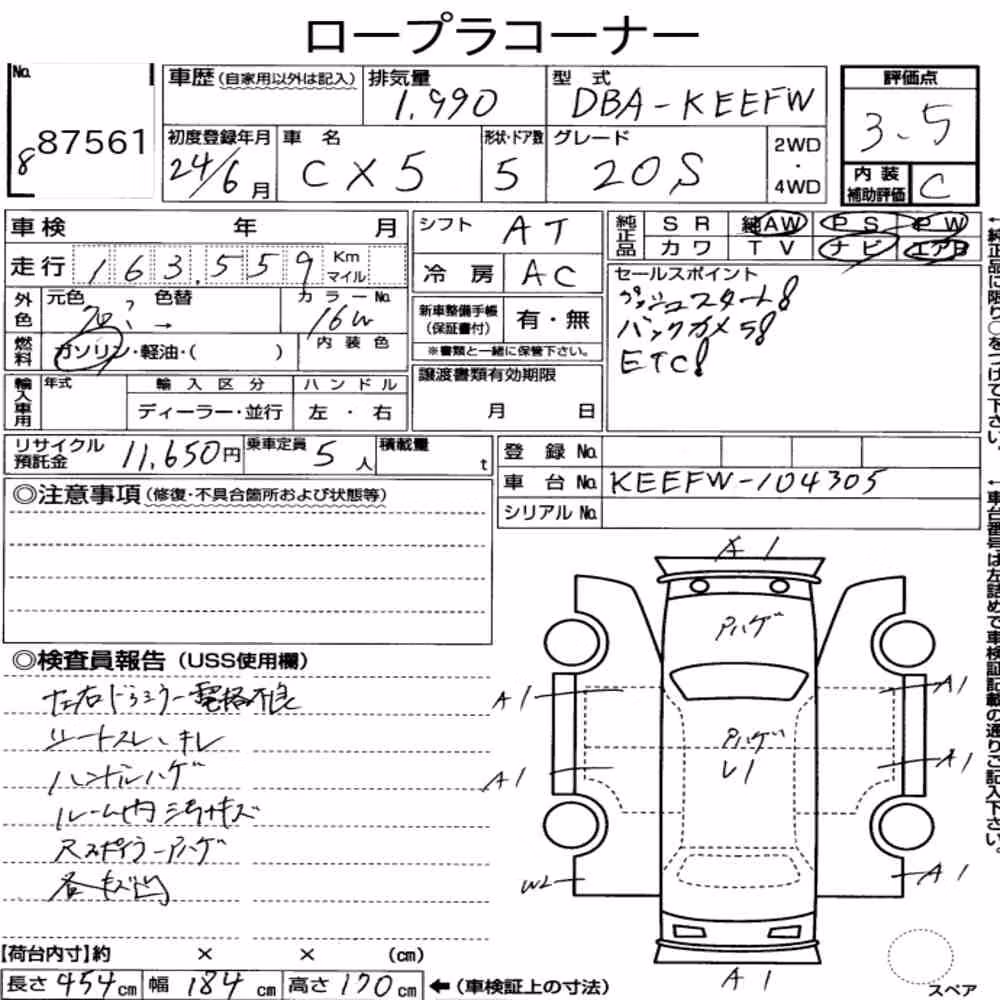 ロープラコーナー
No. 87561
8
車歴(自家用以外は記入) 排気量 1,990 型式 DBA-KEEFW 評価点 3.5
初度登録年月 24/6月 車名 CX5 形状・ドア数 5 グレード 20S 2WD・4WD 内装補助評価 C
車検 年 月 シフト AT 純正品 SR 純AW PS PW
カワ TV ナビ エアB
走行 163,559 Km マイル 冷房 AC
セールスポイント
プッシュスタート!
バックカメラ!
ETC!
外色 元色 色替 → カラーNo. 16W
内装色
燃料 ガソリン・軽油・( )
新車整備手帳(保証書付) 有・無
※書類と一緒に保管下さい。
譲渡書類有効期限
月 日
輸入車用 年式 輸入区分 ハンドル
ディーラー・並行 左・右
リサイクル預託金 11,650円 乗車定員 5人 積載量 t
登録No.
車台No. KEEFW-104305
シリアルNo.
◎注意事項(修復・不具合箇所および状態等)
◎検査員報告(USS使用欄)
左右ドアミラー電格不良
シートスレ、キレ
ハンドルハゲ
ルーム内汚キズ
Rスポイラーハゲ
各キズ凹
【荷台内寸】約 × × (cm)
長さ 454cm 幅 184cm 高さ 170cm ←(車検証上の寸法)
A1
Pハゲ
A1
A1
Pハゲ
L1
A1
A1
W2
A1
A1
スペア
←純正品に限り○をつけて下さい。
←車台番号は左詰めで車検証記載の通りご記入下さい。